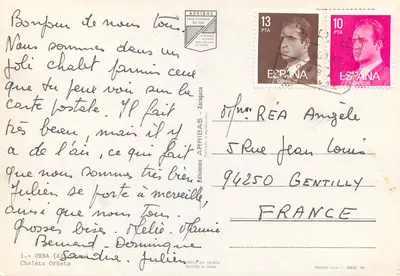 Bonjour de nous tous.
Nous sommes dans un
joli chalet parmis ceux
que tu peux voir sur la
carte postale. Il fait
très beau, mais il y
a de l'air, ce qui fait
que nous sommes très bien.
Julien se porte à merveille,
ainsi que nous tous.
Grosses bises.
Bernard - Dominique
Sandra. Julien
1.- ORBA
Chalets Orbeta
ARRIBAS
Ediciones ARRIBAS - Zaragoza
13
PTA
ESPAÑA
10
PTA
ESPAÑA
RÉA Angèle
5 Rue Jean Louis
94250 GENTILLY
FRANCE